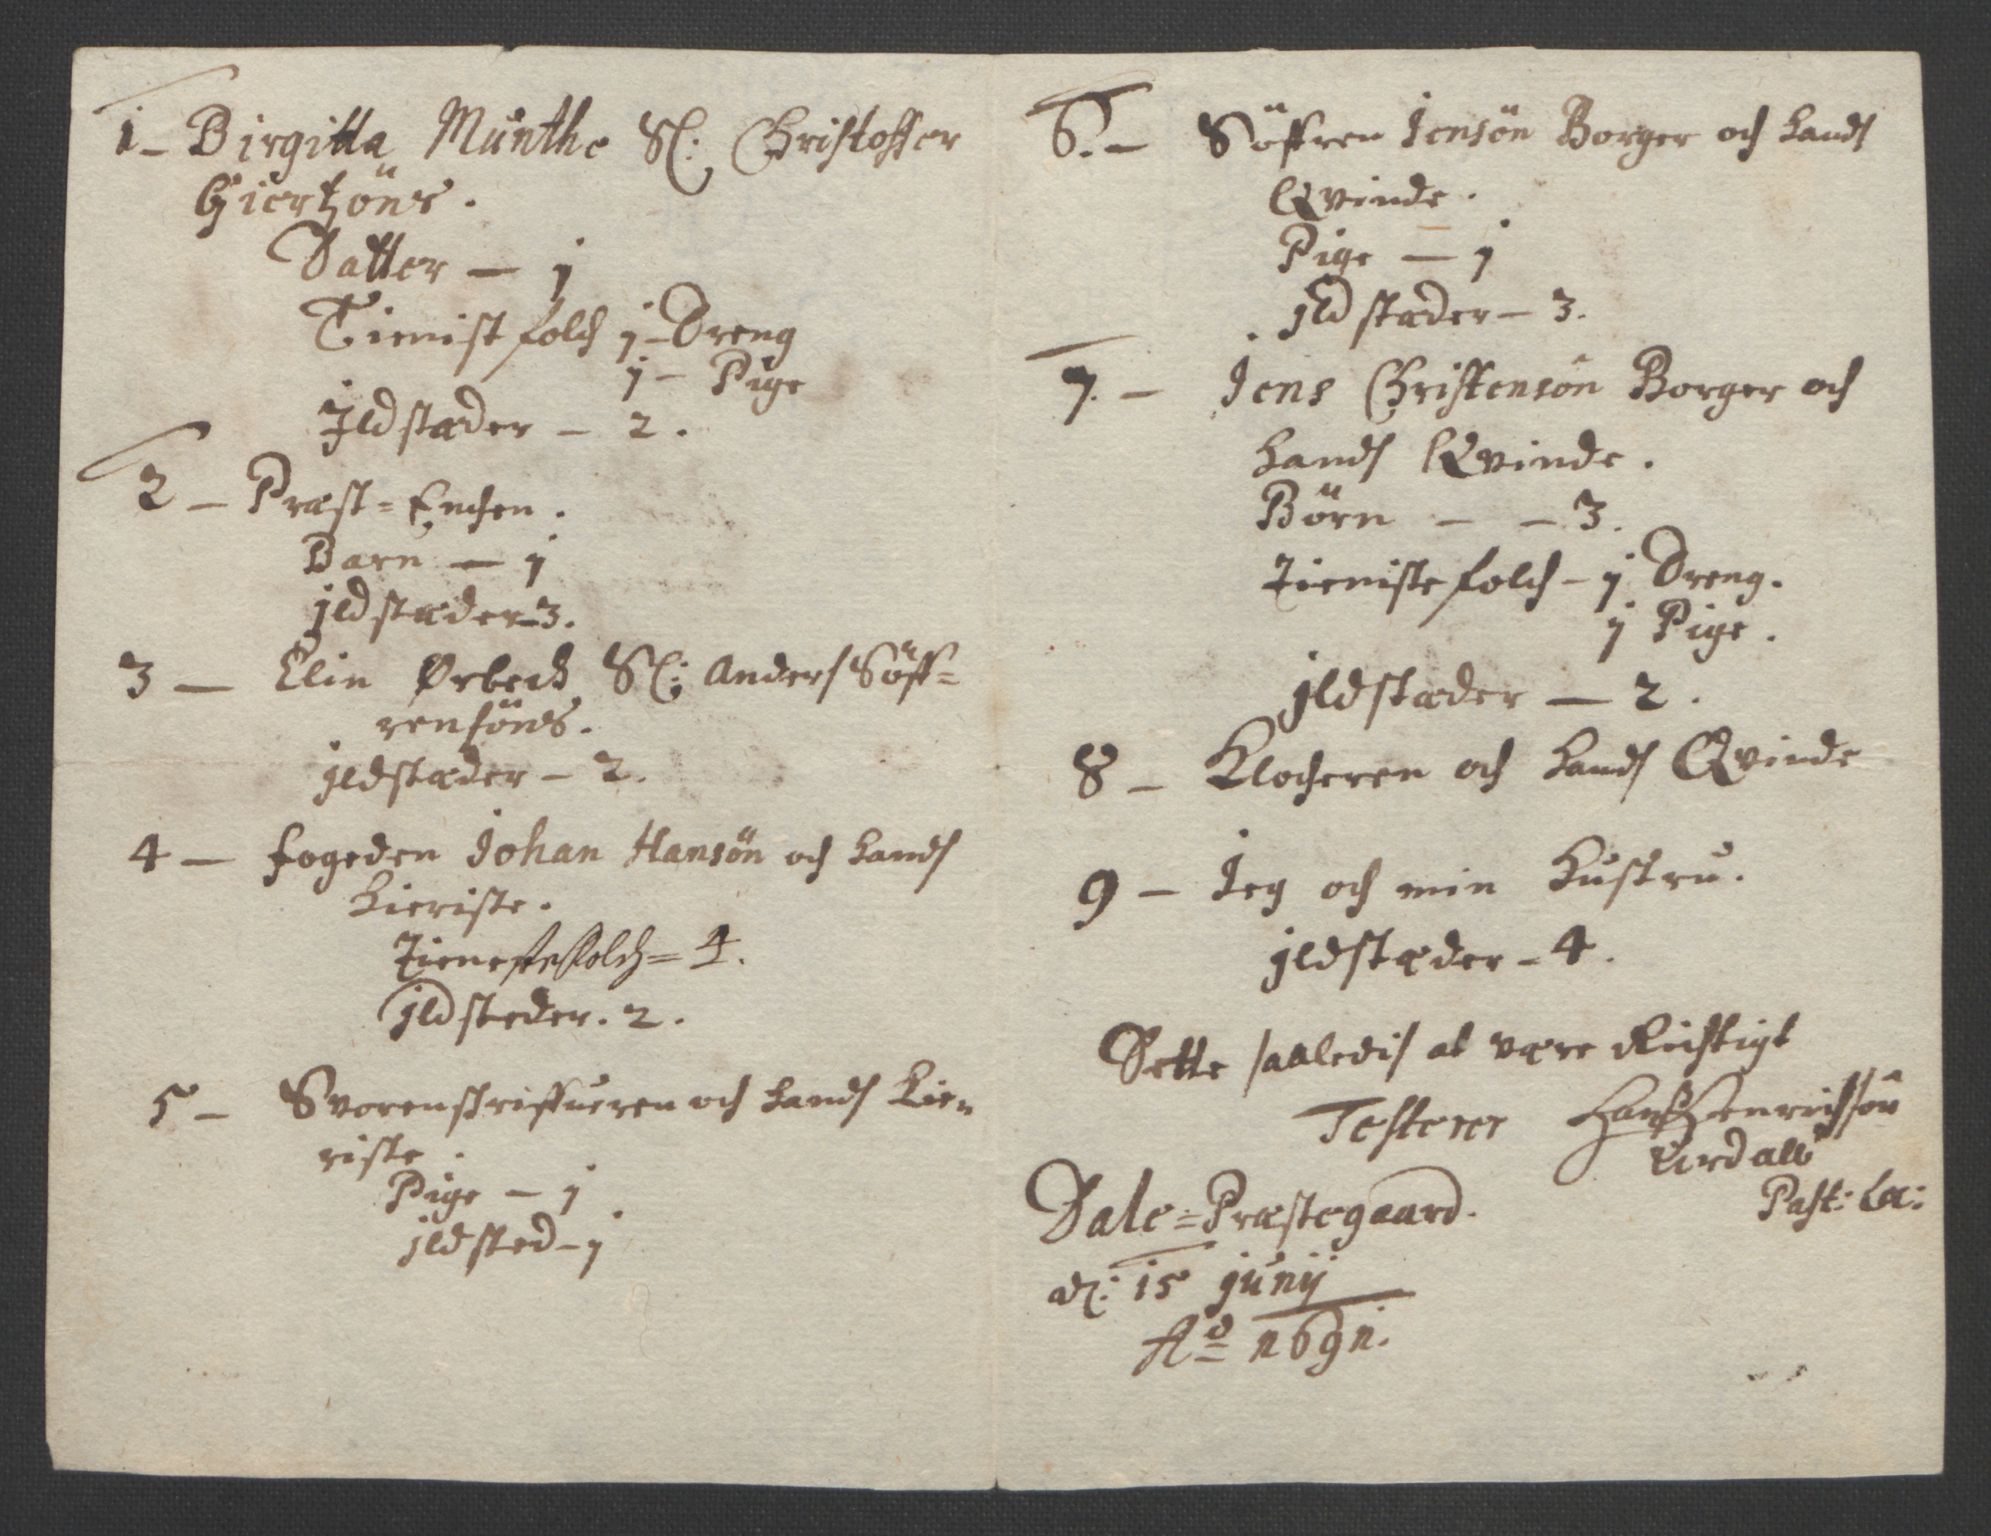 1 - Birgitta Munthe Sl: Christoffer
Giertzöns.
Datter — j
Tienist folch j - Dreng
j - Pige
Jldstæder - 2.
2 - Præst=Enchen.
Barn — j
jldstæder - 3.
3 — Elin Ørbech Sl: Anders Söff=
rensöns.
jldstæder - 2.
4 — fogeden Johan Hansön och hands
kieriste.
Tienestefolch = 4.
jldsteder. 2.
5 - Svorenskriffueren och hands kie=
riste.
Pige - j.
jldsted - j
6. - Söffren Jensön Borger och hands
Qvinde.
Pige — j
jldstæder - 3.
7. - Jens Christensön Borger och
hands Qvinde.
Börn - - 3.
Tieniste folch - j Dreng.
j Pige.
jldstæder — 2.
8 - Klocheren och hands Qvinde
9 - Jeg och min Hustru.
jldstæder - 4.
Dette saaledis at være Richtigt
Testerer Hans Henrichsön
Urdall
Past: Loc:
Dale = Præstegaard.
d: 15 junij
Ao 1691.